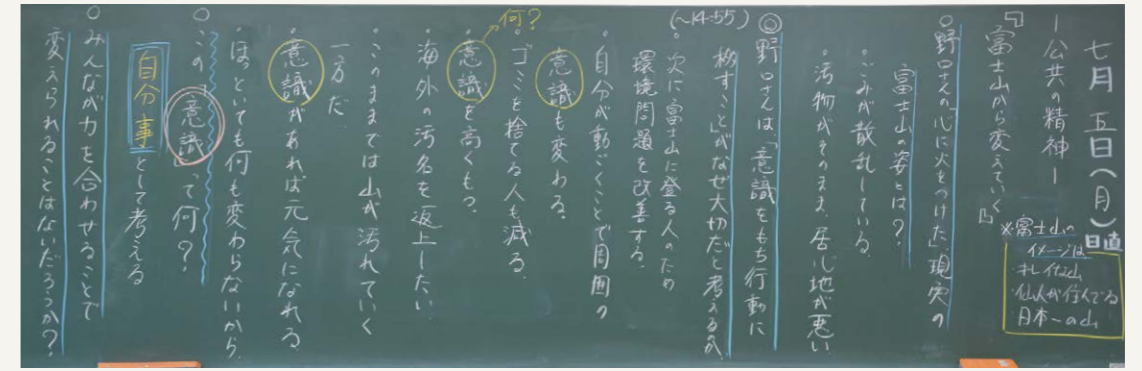 七月 五日(月) 日直
―公共の精神―
『富士山から変えていく』
※富士山の
イメージは
キレイな山
仙人が行ってる
日本一の山
○野口さんの「心に火をつけた」現実の
富士山の姿とは?
・ごみが散乱している。
・汚物がそのまま、居心地が悪い
(〜14:55)
◎野口さんは、「意識をもち行動に
移すこと」がなぜ大切だと考えるのか
・次に富士山に登る人のため
環境問題を改善する。
・自分が動くことで周囲の
意識も変わる。
・ゴミを捨てる人も減る。
・意識を高くもつ。
何?
・海外の汚名を返上したい
・このままでは山が汚れていく
一方だ
・意識があれば元気になれる
・ほっといても何も変わらないから
○この「意識」って何?
自分事として考える
○みんなが力を合わせることで
変えられることはないだろうか?